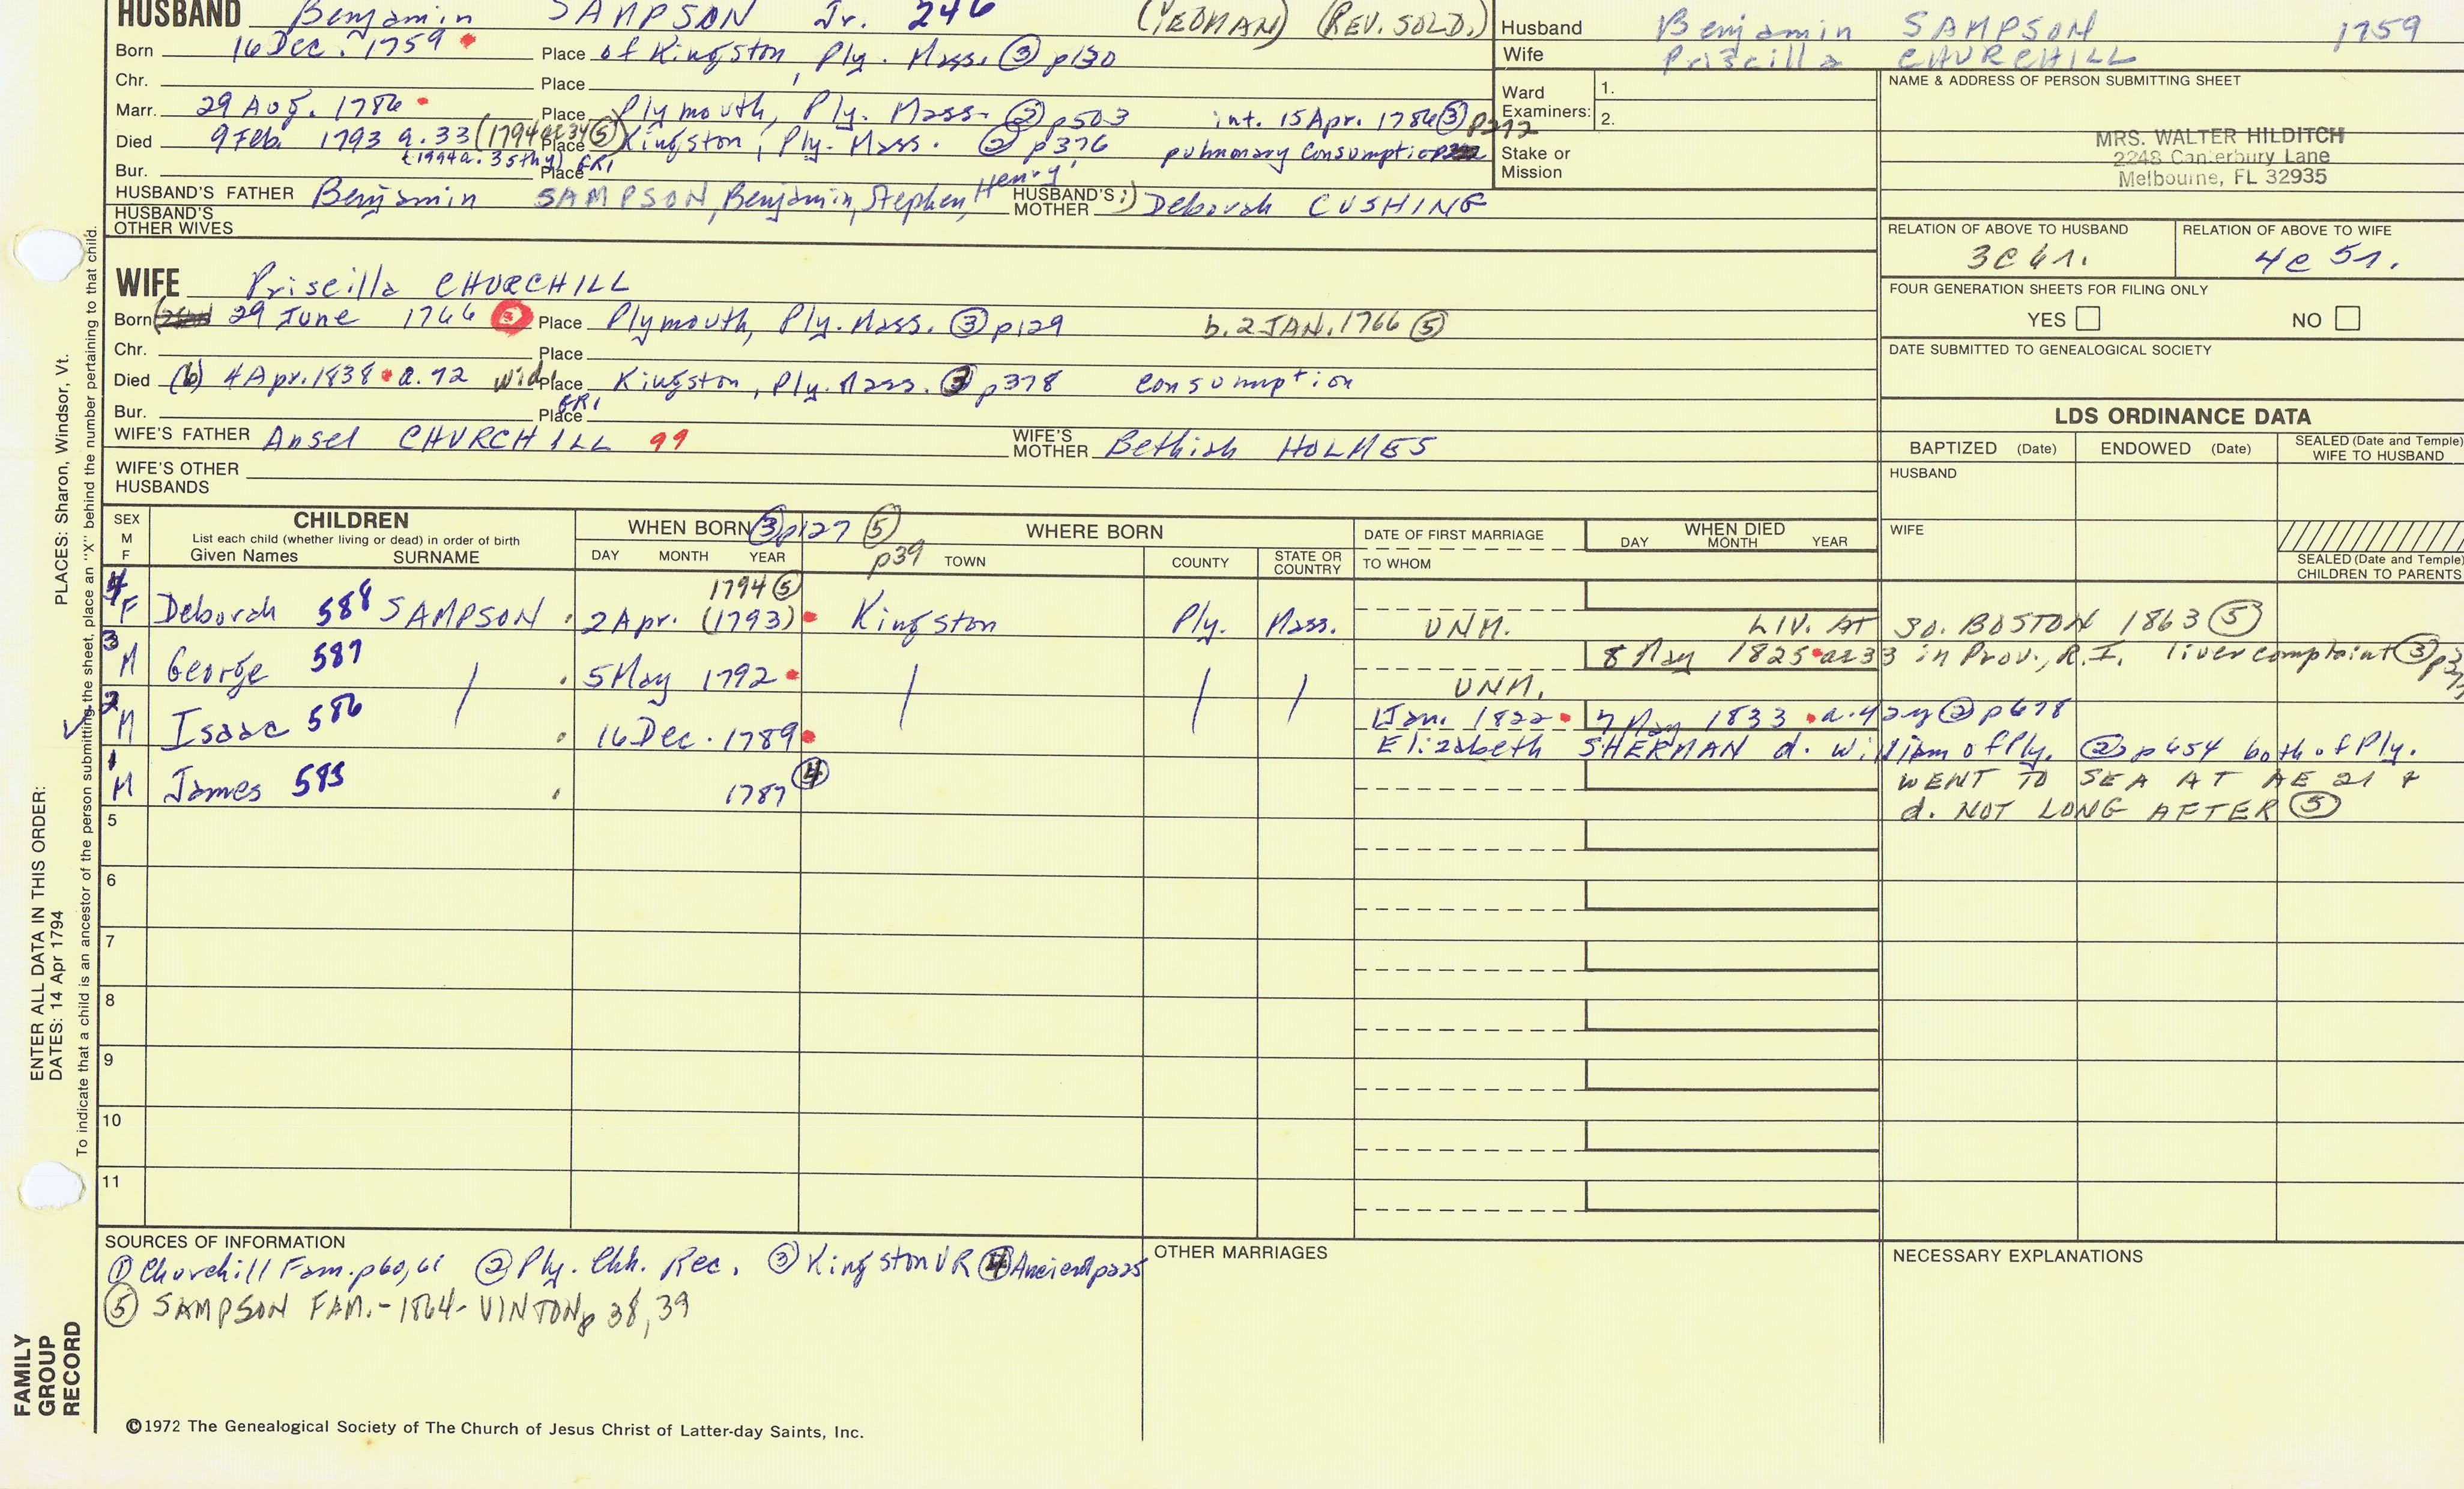 HUSBAND Benjamin SAMPSON Jr. 246 (YEOMAN) (REV. SOLD.)
Born 16 Dec. 1759 Place of Kingston, Ply. Mass. ③ p130
Chr. Place
Marr. 29 Aug. 1786 Place Plymouth, Ply. Mass. ② p503 int. 15 Apr. 1786 ③ p272
Died 9 Feb. 1793 a. 33 (1794 ae 34 ⑤) Place Kingston, Ply. Mass. ② p376 pulmonary consumption
(1794 a. 35thy) GR1
Bur. Place
HUSBAND'S FATHER Benjamin SAMPSON, Benjamin, Stephen, Henry, HUSBAND'S MOTHER Deborah CUSHING
HUSBAND'S OTHER WIVES
Husband Benjamin SAMPSON 1759
Wife Priscilla CHURCHILL
Ward Examiners: 1.
2.
Stake or Mission
NAME & ADDRESS OF PERSON SUBMITTING SHEET
MRS. WALTER HILDITCH
2248 Canterbury Lane
Melbourne, FL 32935
RELATION OF ABOVE TO HUSBAND RELATION OF ABOVE TO WIFE
3C 6r. 4c 5r.
FOUR GENERATION SHEETS FOR FILING ONLY
YES NO
DATE SUBMITTED TO GENEALOGICAL SOCIETY
WIFE Priscilla CHURCHILL
Born 29 June 1766 Place Plymouth, Ply. Mass. ③ p129 b. 2 JAN. 1766 ⑤
Chr. Place
Died (6) 4 Apr. 1838 a. 72 wid. Place Kingston, Ply. Mass. ③ p378 consumption
GR1
Bur. Place
WIFE'S FATHER Ansel CHURCHILL 99 WIFE'S MOTHER Bethiah HOLMES
WIFE'S OTHER HUSBANDS
LDS ORDINANCE DATA
BAPTIZED (Date) ENDOWED (Date) SEALED (Date and Temple) WIFE TO HUSBAND
HUSBAND
WIFE
SEALED (Date and Temple) CHILDREN TO PARENTS
SEX M F
CHILDREN
List each child (whether living or dead) in order of birth
Given Names SURNAME
WHEN BORN ③ p127 ⑤ p39
DAY MONTH YEAR
WHERE BORN
TOWN COUNTY STATE OR COUNTRY
DATE OF FIRST MARRIAGE
TO WHOM
WHEN DIED
DAY MONTH YEAR
1794 ⑤
4 F Deborah 588 SAMPSON 2 Apr. (1793) Kingston Ply. Mass. UNM. LIV. AT SO. BOSTON 1863 ⑤
3 M George 587 / 5 May 1792 / / / UNM. 8 May 1825 ae 33 in Prov., R.I. liver complaint ③
2 M Isaac 586 16 Dec. 1789 Jan. 1822 7 May 1833 a. 42y ② p678
Elizabeth SHERMAN d. William of Ply. ② p454 both of Ply.
1 M James 585 1787 ④ WENT TO SEA AT AE 21 &
d. NOT LONG AFTER ⑤
5
6
7
8
9
10
11
SOURCES OF INFORMATION
① Churchill Fam. p60,61 ② Ply. Chh. Rec. ③ Kingston VR ④ Ancient p225
⑤ SAMPSON FAM. - 1864 - VINTON p 38, 39
OTHER MARRIAGES
NECESSARY EXPLANATIONS
©1972 The Genealogical Society of The Church of Jesus Christ of Latter-day Saints, Inc.
FAMILY GROUP RECORD
ENTER ALL DATA IN THIS ORDER:
DATES: 14 Apr 1794
PLACES: Sharon, Windsor, Vt.
To indicate that a child is an ancestor of the person submitting the sheet, place an "X" behind the number pertaining to that child.